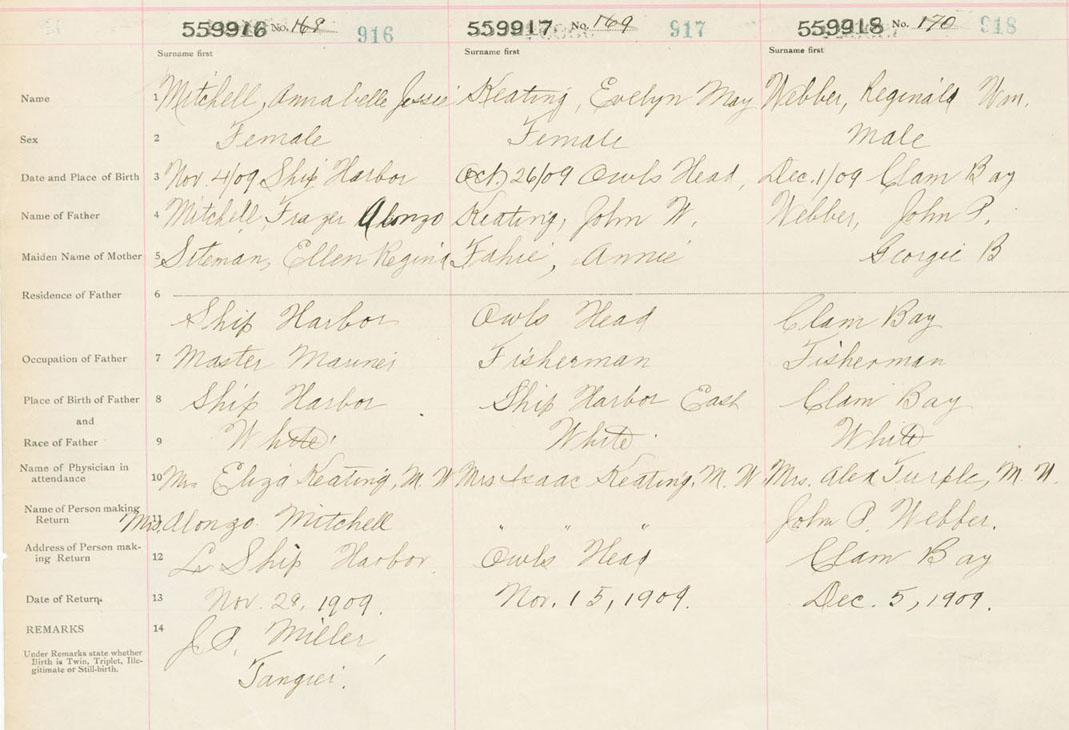 559916 No. 168 916 559917 No. 169 917 559918 No. 170 918
Surname first Surname first Surname first
Name 1 Mitchell, Annabelle Jessie Keating, Evelyn May Webber, Reginald Wm.
Sex 2 Female Female Male
Date and Place of Birth 3 Nov. 4/09 Ship Harbor Oct. 26/09 Owls Head, Dec. 1/09 Clam Bay
Name of Father 4 Mitchell, Frazer Alonzo Keating, John W. Webber, John P.
Maiden Name of Mother 5 Siteman, Ellen Regina Fahie, Annie Georgie B
Residence of Father 6
Ship Harbor Owls Head Clam Bay
Occupation of Father 7 Master Mariner Fisherman Fisherman
Place of Birth of Father 8 Ship Harbor Ship Harbor East Clam Bay
and
Race of Father 9 White White White
Name of Physician in
attendance 10 Mrs Eliza Keating, M. W Mrs Isaac Keating, M. W. Mrs. Alex Turple, M. W.
Name of Person making
Return 11 Mrs. Alonzo Mitchell " " " John P. Webber.
Address of Person mak-
ing Return 12 Ship Harbor Owls Head Clam Bay
Date of Return 13 Nov. 29, 1909. Nov. 15, 1909. Dec. 5, 1909.
REMARKS 14 J. P. Miller,
Under Remarks state whether
Birth is Twin, Triplet, Ille-
gitimate or Still-birth.
Tangier.